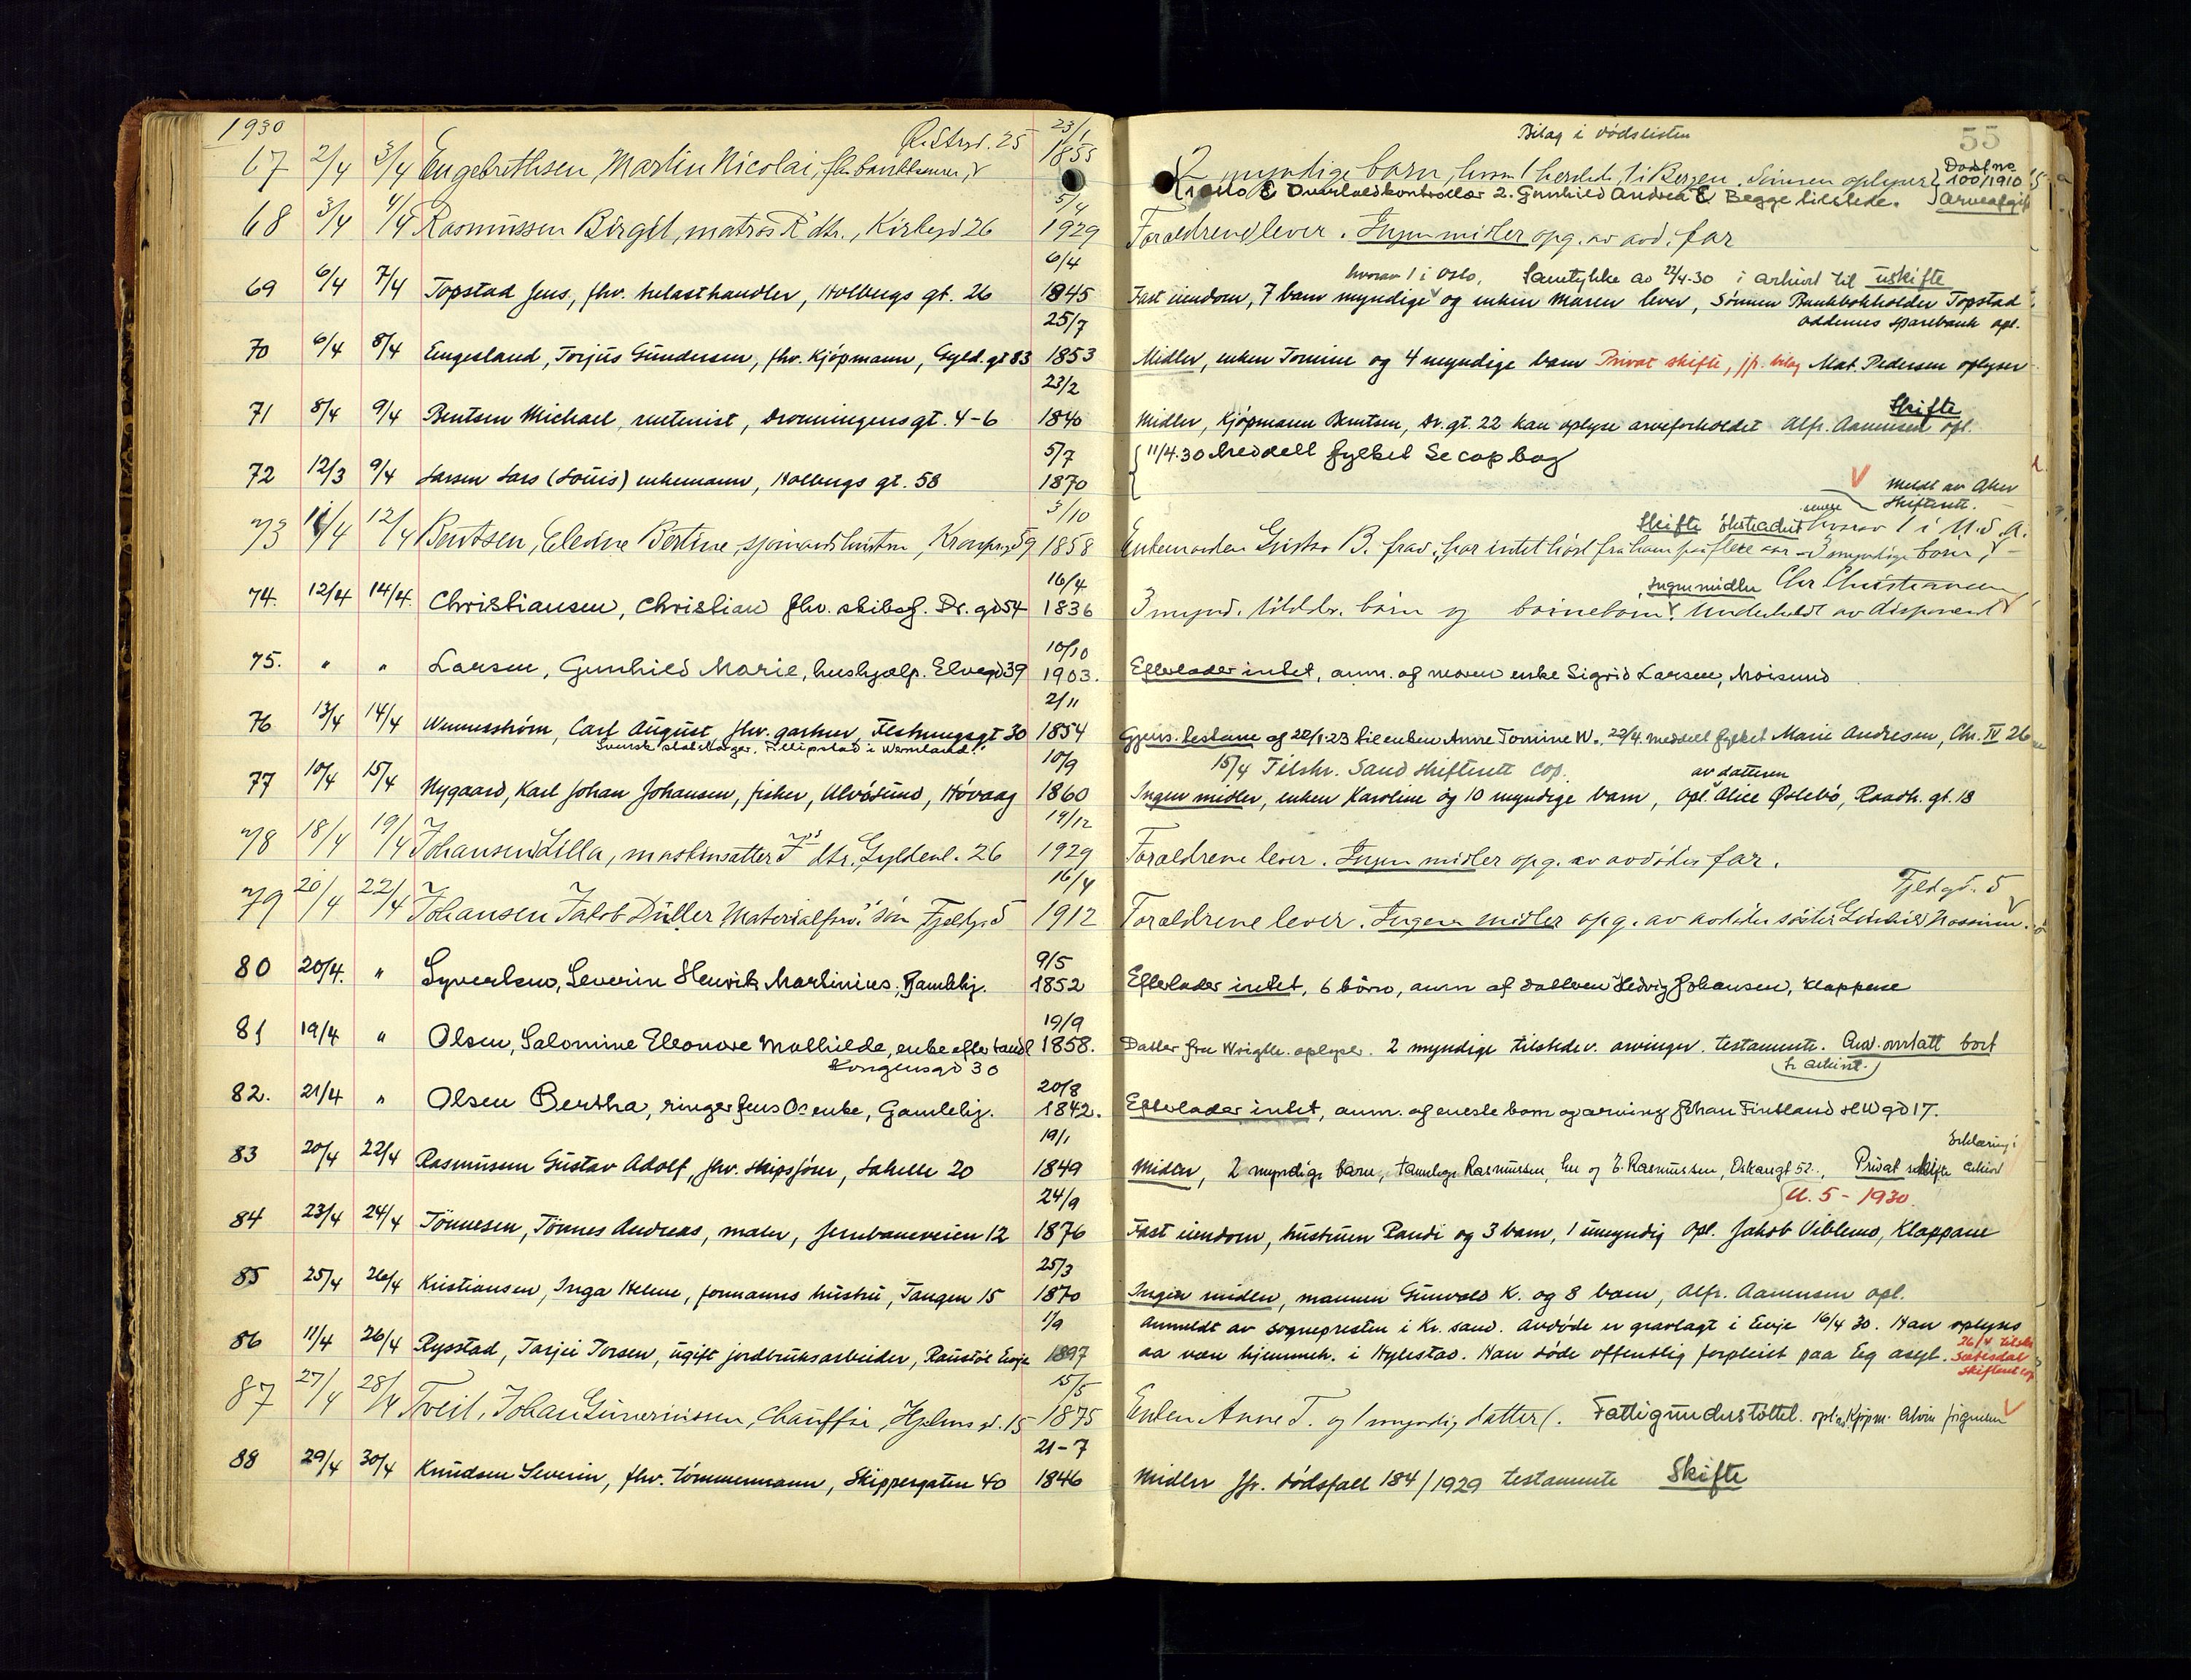 1930
Bilag i dødslisten
55
67 2/4 3/4 Engebrethsen, Martin Nicolai, fhv. 23/1 1855
2 myndige barn, hvorav 1 i Bergen. Sønnen oplyser Dødsf. no 100/1910
Overlodskontrollør 2. Gunhild Andrea E Begge tilstede. arveafgift
68 3/4 4/4 Rasmussen Birgit, matros R' dtr., Kirkegd 26 5/4 1929
Forældrene lever. Ingen midler opg. av avd. far
hvorav 1 i Oslo. Samtykke av 22/4-30 i arkivet til uskifte
69 6/4 7/4 Topstad Jens, fhv. trelasthandler, Holbergs gt. 26 6/4 1845
Fast eiendom, 7 barn myndige og enken Maren lever, Sønnen Bankbokholder Topstad
Oddernes Sparebank opl.
70 6/4 8/4 Eugesland, Torjus Gundersen, fhv. Kjøpmann, Gyld. gt 83 25/7 1853
Midler, enken Tomine og 4 myndige barn Privat skifte, jfr. bilag Mat. Pedersen oplyser
71 8/4 9/4 Bentsen Michael, rentenist, Dronningensgt. 4-6 23/2 1840
Midler, Kjøpmann Bentsen, Dr. gt. 22 kan oplyse arveforholdet Alfr. Aanunsen opl. Skifte
72 12/3 9/4 Larsen Lars (Louis) enkemann, Holbergs gt. 58 5/7 1870
11/4.30 Meddelt fylket Se copbog
meldt av Aker Skifterett.
73 11/4 12/4 Bentsen, Elevine Bertine, sjømands hustru, Kronprsgd 59 3/10 1858
Skifte hvorav 1 i U.S.A.
Enkemanden B. frav., har intet hørt fra ham paa flere aar - myndige barn,
74. 12/4 14/4. Christiansen, Christian fhv. skibsf. Dr. gd 54 16/4 1836
Ingen midler Chr Christiansen
3 mynd. tilstedev. børn og børnebørn. Underholdt av disponent
75. " " Larsen, Gunhild Marie, hushjælp. Elvegd 39 10/10 1903.
Efterlader intet, anm. af moren enke Sigrid Larsen, Mosisund
76 13/4 14/4 Wennerstrøm, Carl August, fhv. gartner, Festningsgt 30 2/11 1854
Svensk statsborger. Fillipstad i Wermland.
Gjens. testame af 22/1-23 til enken Anne Tomine W., 22/4. meddelt fylket Marie Andresen, Chr. IV 26
15/4 Tilskr. Sand skifterett cop.
av datteren
77 10/4 15/4 Nygaard, Karl Johan Johansen, fisker, Ulvøsund, Høvaag 10/9 1860
Ingen midler, enken Karoline og 10 myndige barn, Opl. Alice Øslebø, Raadh. gt. 18
78 18/4 19/4 Johansen Lilla, maskinsætter J's dtr., Gyldenl. 26 19/12 1929
Forældrene lever. Ingen midler opg. av avdødes far.
79 20/4 22/4 Johansen Jakob Düller Materialforv. søn Fjeldgd 5 16/4 1912
Fjeldgd. 5
Forældrene lever. Ingen midler opg. av avdødes søster
80 20/4. " Syvertsen, Severin Henrik Martinius, Gamlehj. 9/5 1852
Efterlader intet, 6 børn, anm af datteren Hedvig Johansen, Klappene
81 19/4 " Olsen, Salomine Eleonore Mathilde, enke efter 19/9 1858.
Kongensgd 30
Datter fru oplyser. 2 myndige tilstedev. arvinger. testamente. bort
82. 21/4 " Olsen Bertha, ringer Jens Os enke, Gamlehj. 20/8 1842.
Efterlader intet, anm. af eneste barn og arving Johan Fintland
83 20/4 22/4 Rasmussen Gustav Adolf, fhv. skipsfører, Lahelle 20 19/1 1849
Erklæring i arkivet
Midler, 2 myndige barn, tannlege Rasmussen, og E. Rasmussen, Oskarsgt 52., Privat skifte
U. 5 - 1930
84 23/4 24/4 Tønnesen, Tønnes Andreas, maler, Jernbaneveien 12 24/9 1876
Fast eiendom, hustruen Randi og 3 barn, 1 umyndig Opl. Jakob Viblemo, Klappane
85 25/4 26/4 Kristiansen, Inga Helene, formanns hustru, Tangen 15 25/3 1870
Ingen midler, mannen Gunvald K. og 8 barn, Alfr. Aanunsen opl.
86 11/4 26/4 Rysstad, Tarjei Torsen, ugift jordbruksarbeider, Raustøl Evje 1/9 1897
Anmeldt av sognepresten i Kr. sand. Avdøde er gravlagt i Evje 16/4 30. Han oplyses
aa være hjemmeh. i Hylestad. Han døde offentlig forpleiet paa Eg asyl. 26/4 tilskr Sætesdal Skifterett cop
87 27/4 28/4 Tveit, Johan Gunerinssen, Chauffør, Hjelms gd. 15 15/5 1875
Enken Anne T. og 1 myndig datter. Fattigunderstøttet. opl. av Kjøpm. Alvin
88 29/4 30/4 Knudsen Severin, fhv. tømmermann, Skippergaten 40 21-7 1846
Midler jfr. dødsfall 184/1929 testamente Skifte